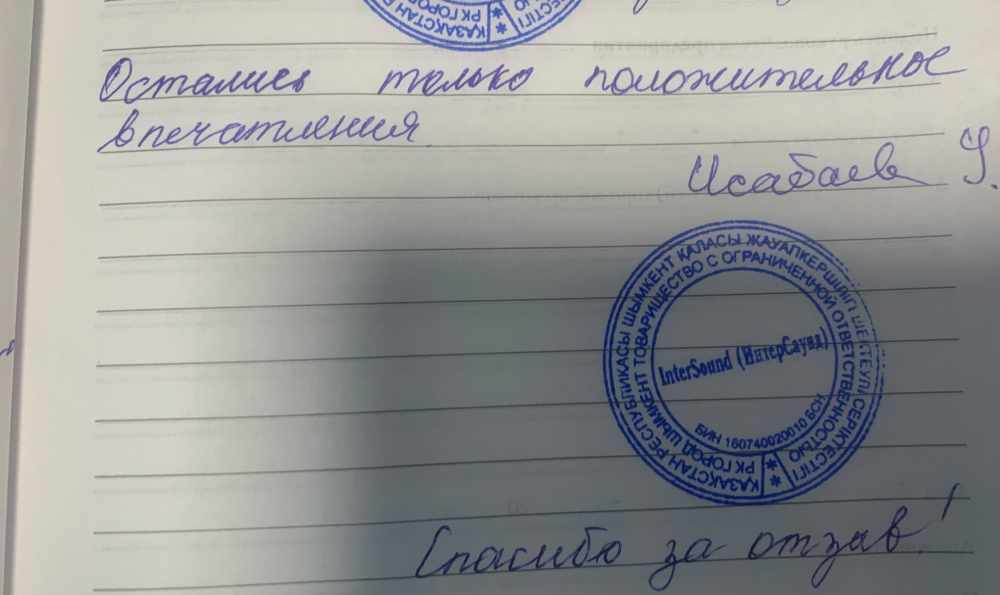 ҚАЗАҚСТАН
РК ГОРОД
Остались только положительное
впечатления
Исабаев У.
ҚАЗАҚСТАН РЕСПУБЛИКАСЫ ШЫМКЕНТ ҚАЛАСЫ ЖАУАПКЕРШІЛІГІ ШЕКТЕУЛІ СЕРІКТЕСТІГІ
РК ГОРОД ШЫМКЕНТ ТОВАРИЩЕСТВО С ОГРАНИЧЕННОЙ ОТВЕТСТВЕННОСТЬЮ
InterSound (ИнтерСаунд)
БИН 160740020010 БСН
Спасибо за отзав!